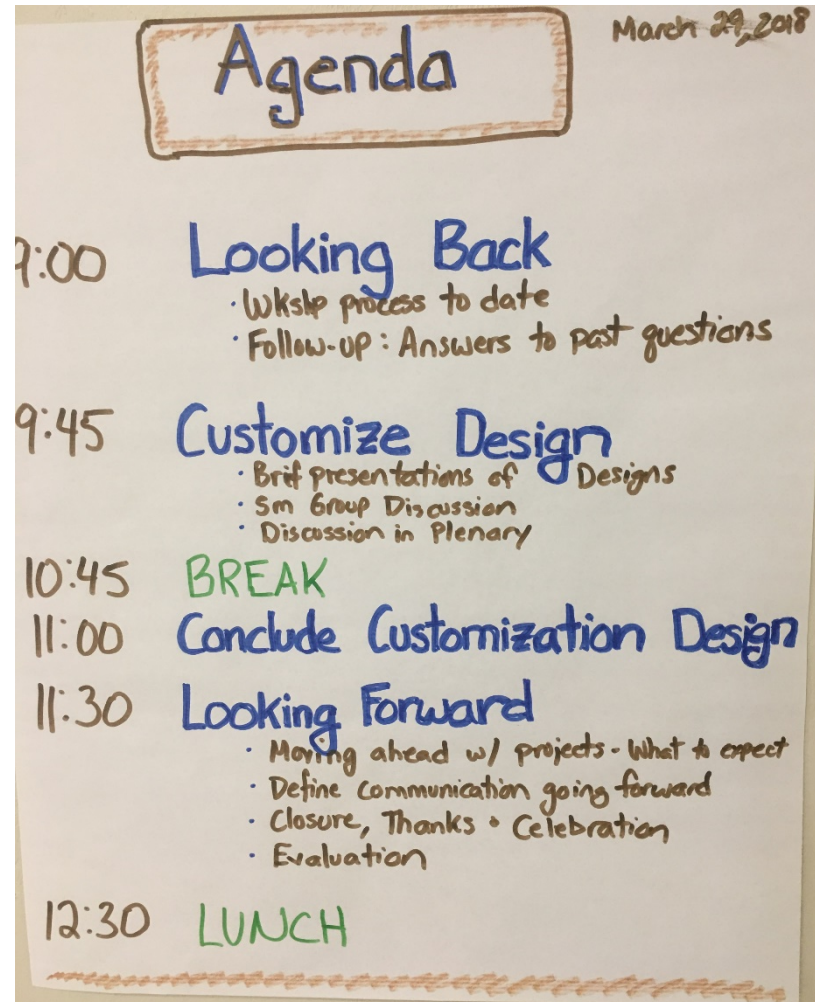 March 29, 2018
Agenda
9:00 Looking Back
· Wkshp process to date
· Follow-up: Answers to past questions
9:45 Customize Design
· Brif presentations of Designs
· Sm Group Discussion
· Discussion in Plenary
10:45 BREAK
11:00 Conclude Customization Design
11:30 Looking Forward
· Moving ahead w/ projects - What to expect
· Define communication going forward
· Closure, Thanks + Celebration
· Evaluation
12:30 LUNCH